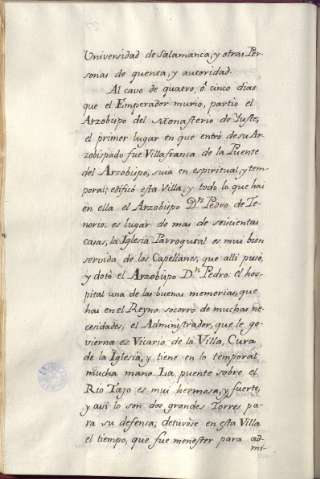 Universidad de Salamanca, y otras Per-
sonas de quenta, y autoridad.
Al cavo de quatro, ó cinco dias
que el Emperador murio, partio el
Arzobispo del Monasterio de Yuste,
el primer lugar en que entró de su Ar-
zobispado fue Villafranca de la Puente
del Arzobispo, sua en espiritual, y tem-
poral; edificó esta Villa, y todo lo que hai
en ella el Arzobispo Dn. Pedro de Te-
norio. es lugar de mas de seiscientas
casas, la Iglesia Parroquial es mui bien
servida de los Capellanes, que alli puso,
y dotó el Arzobispo Dn. Pedro: el hos-
pital una de las buenas memorias, que
hai en el Reyno. socorró de muchas ne-
cesidades, el Administrador, que le go-
vierna es Vicario de la Villa, Cura
de la Iglesia, y tiene en lo temporal
mucha mano. La puente sobre el
Rio Tajo es mui hermosa, y fuerte,
y asi lo son dos grandes Torres pa-
ra su defensa; detuvose en esta Villa
el tiempo, que fue menester para ad-
mi-